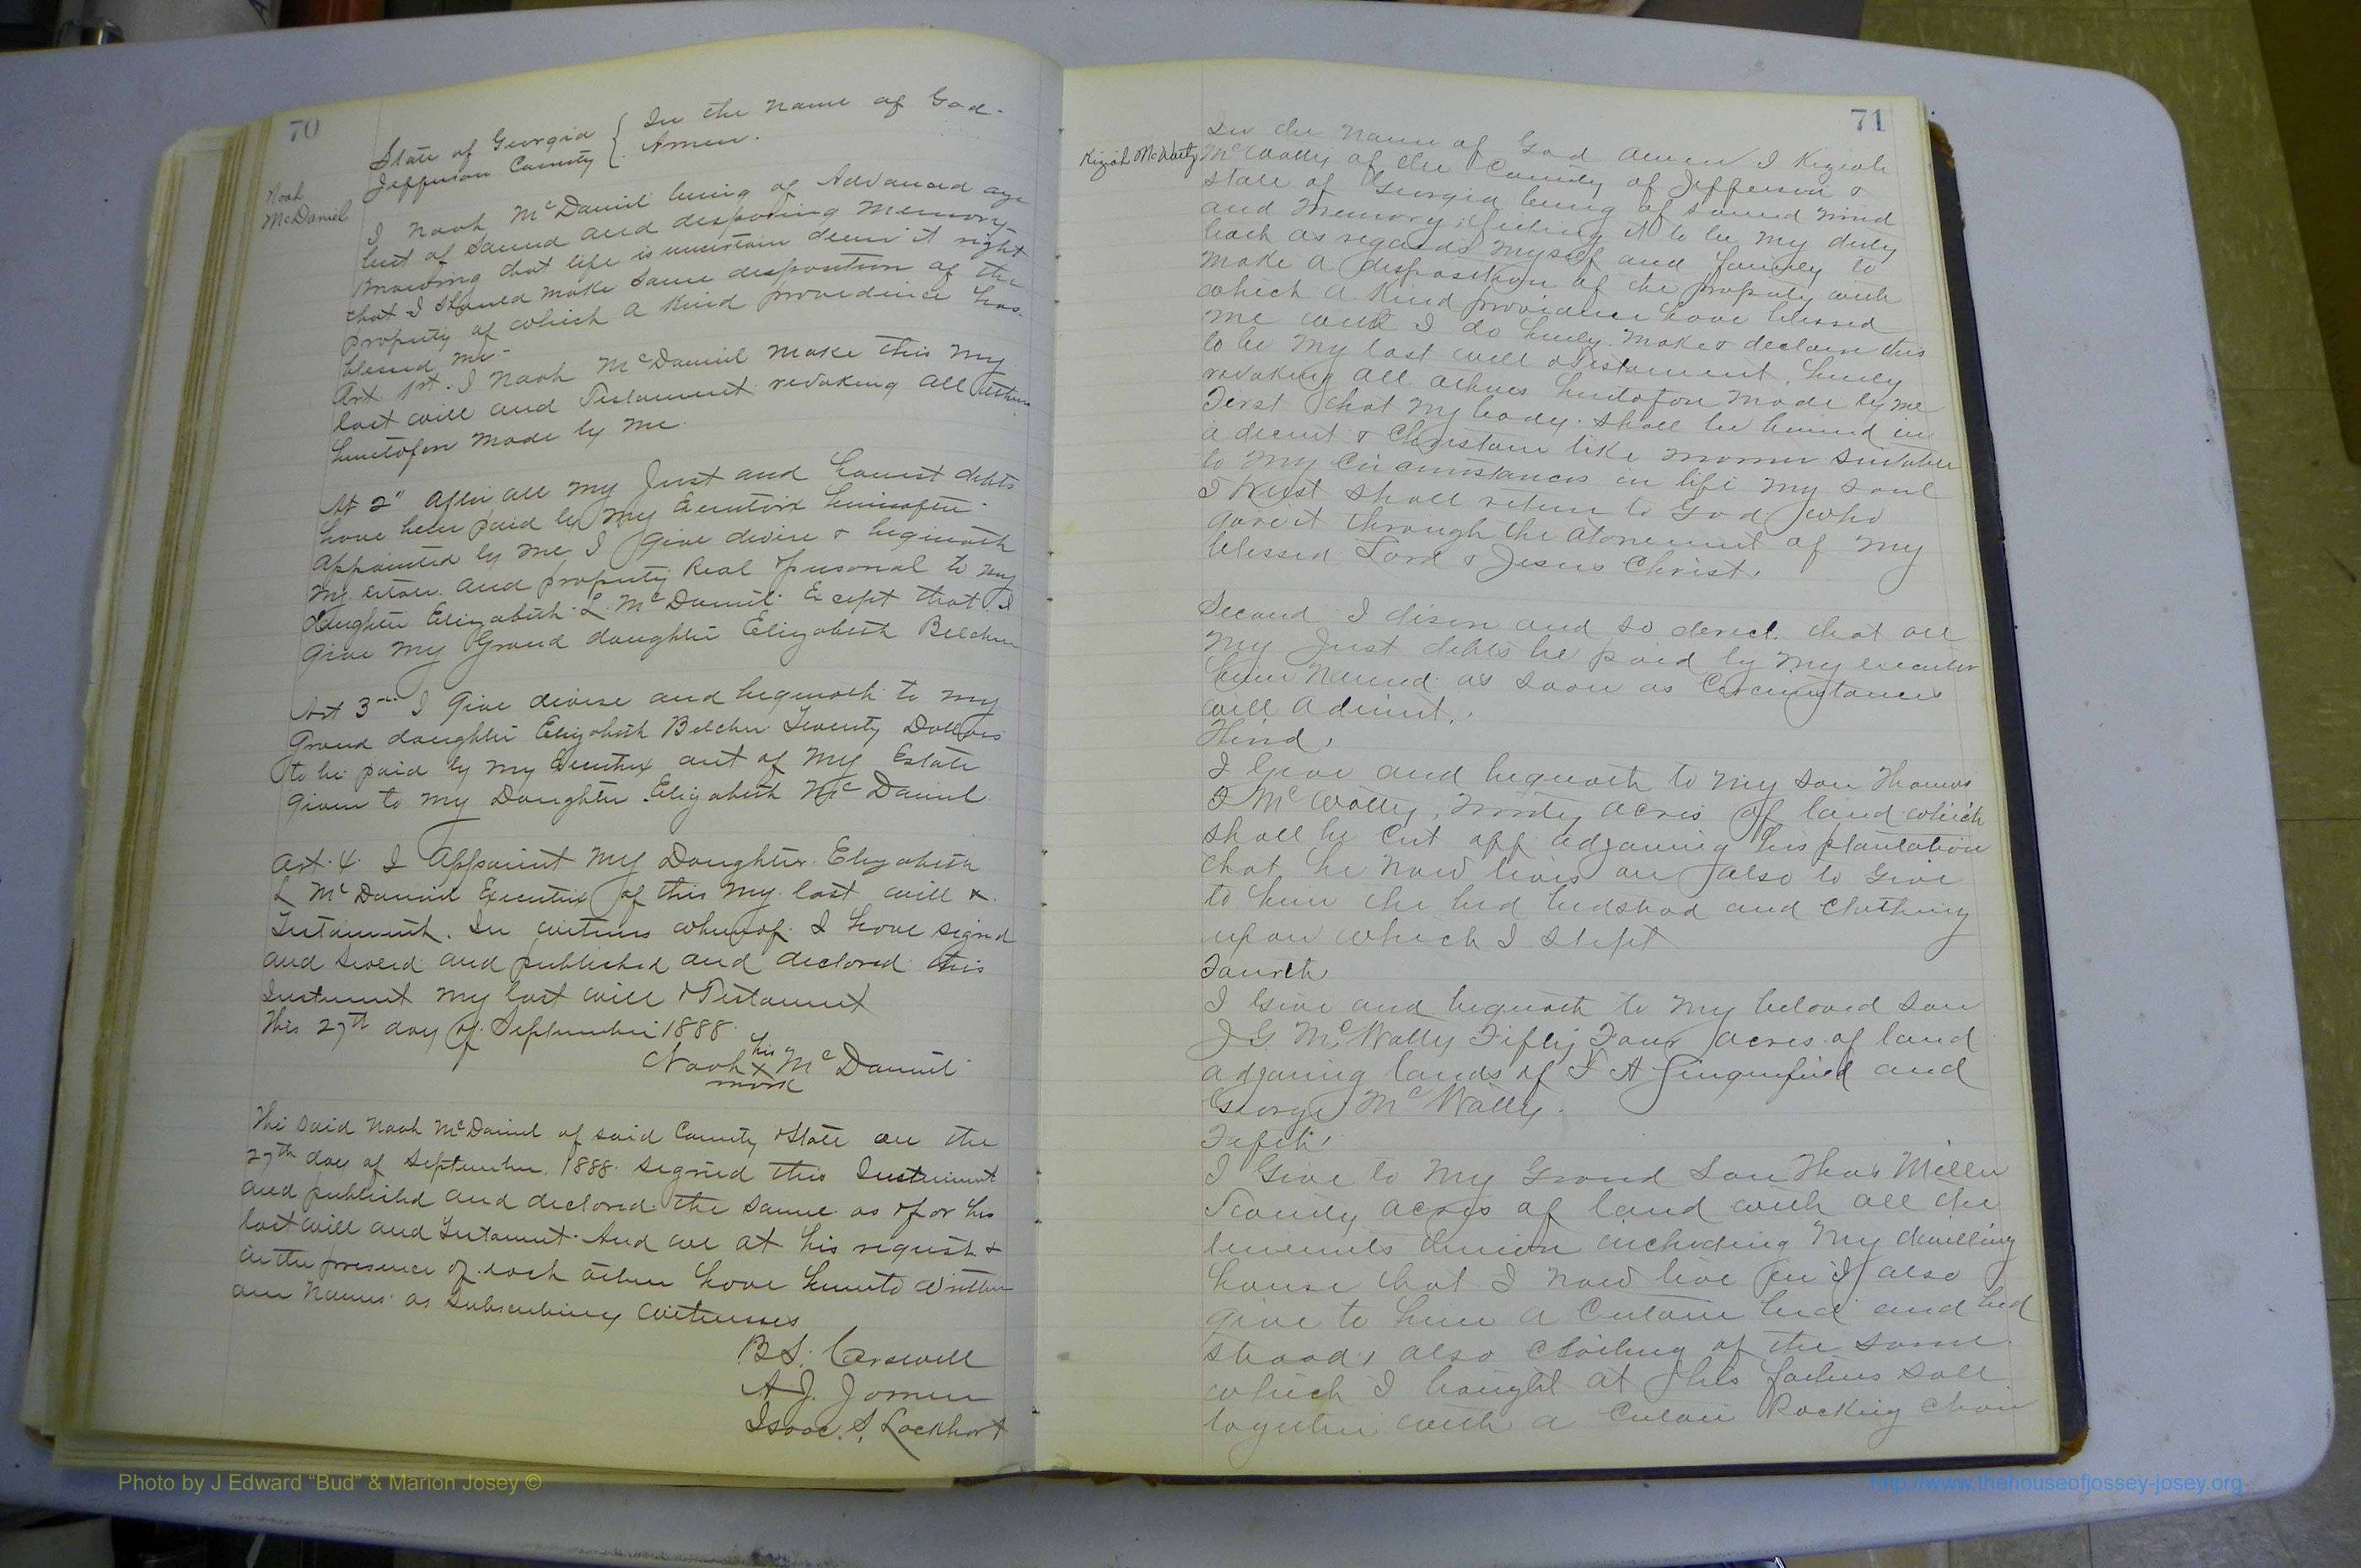 70
State of Georgia { In the name of God.
Jefferson County { Amen.
Noah
McDaniel
I Noah McDaniel being of Advanced age
but of sound and disposing memory
knowing that life is uncertain deem it right
that I should make some disposition of the
property of which a kind providence has
blessed me.-
Art. 1st. I Noah McDaniel make this my
last will and Testament revoking all others
heretofore made by me.
Art 2" After all my Just and honest debts
have been paid by my Executrix hereinafter
appointed by me I give devise & bequeath
my estate and property Real & personal to my
daughter Elizabeth L. McDaniel Except that I
give my Grand daughter Elizabeth Belcher
Art 3rd I give devise and bequeath to my
Grand daughter Elizabeth Belcher Twenty Dollars
to be paid by my Executrix out of my Estate
given to my Daughter Elizabeth McDaniel
Art. 4. I Appoint my Daughter Elizabeth
L McDaniel Executrix of this my last will &
Testament. In witness whereof I have signed
and sealed and published and declared this
Instrument my last will & Testament
This 27th day of September 1888.
Noah his x mark McDaniel
The said Noah McDaniel of said County & State on the
27th day of September 1888 signed this Instrument
and published and declared the same as & for his
last will and Testament. And we at his request &
in the presence of each other have hereunto written
our Names as Subscribing witnesses
B S. Carswell
A J.
Isaac S. Lockhart
71
Kiziah McWatty
In the name of God Amen I Kiziah
McWatty of the County of Jefferson &
State of Georgia being of sound mind
and memory, feeling it to be my duty
both as regards myself and family to
make a disposition of the property with
which a kind providence have blessed
me with I do hereby make & declare this
to be my last will & Testament, hereby
revoking all others heretofore made by me
First that my body shall be buried in
a decent & Christian like manner suitable
to my circumstances in life my soul
I trust shall return to God who
gave it through the atonement of my
blessed Lord & Jesus Christ.
Second I desire and so direct that all
my Just debts be paid by my executor
herein named as soon as Circumstances
will admit.
Third,
I Give and bequeath to my son Thomas
McWatty, ninety acres of land which
shall be cut off adjoining his plantation
that he now lives on also to give
to him the bed bedstead and clothing
upon which I slept
Fourth
I Give and bequeath to my beloved son
J G. McWatty Fifty Four acres of land
adjoining lands of and
George McWatty.
Fifth,
I Give to my Grand Son Thos Miller
Twenty acres of land with all the
thereon including my dwelling
house that I now live in I also
give to him a Certain bed and bed
stead, also clothing of the same
which I bought at his fathers sale
together with a Certain Rocking Chair
Photo by J Edward “Bud” & Marion Josey ©
http://www.thehouseofjossey-josey.org